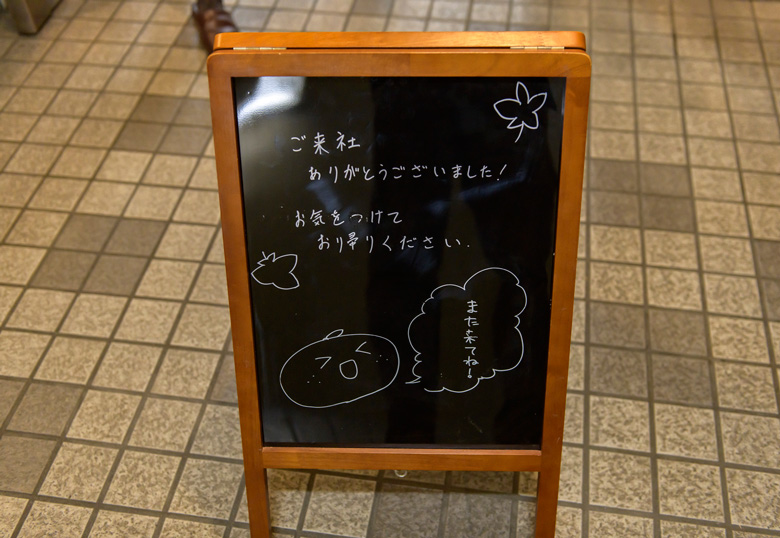 ご来社
ありがとうございました!
お気をつけて
お帰りください.
また来てね!